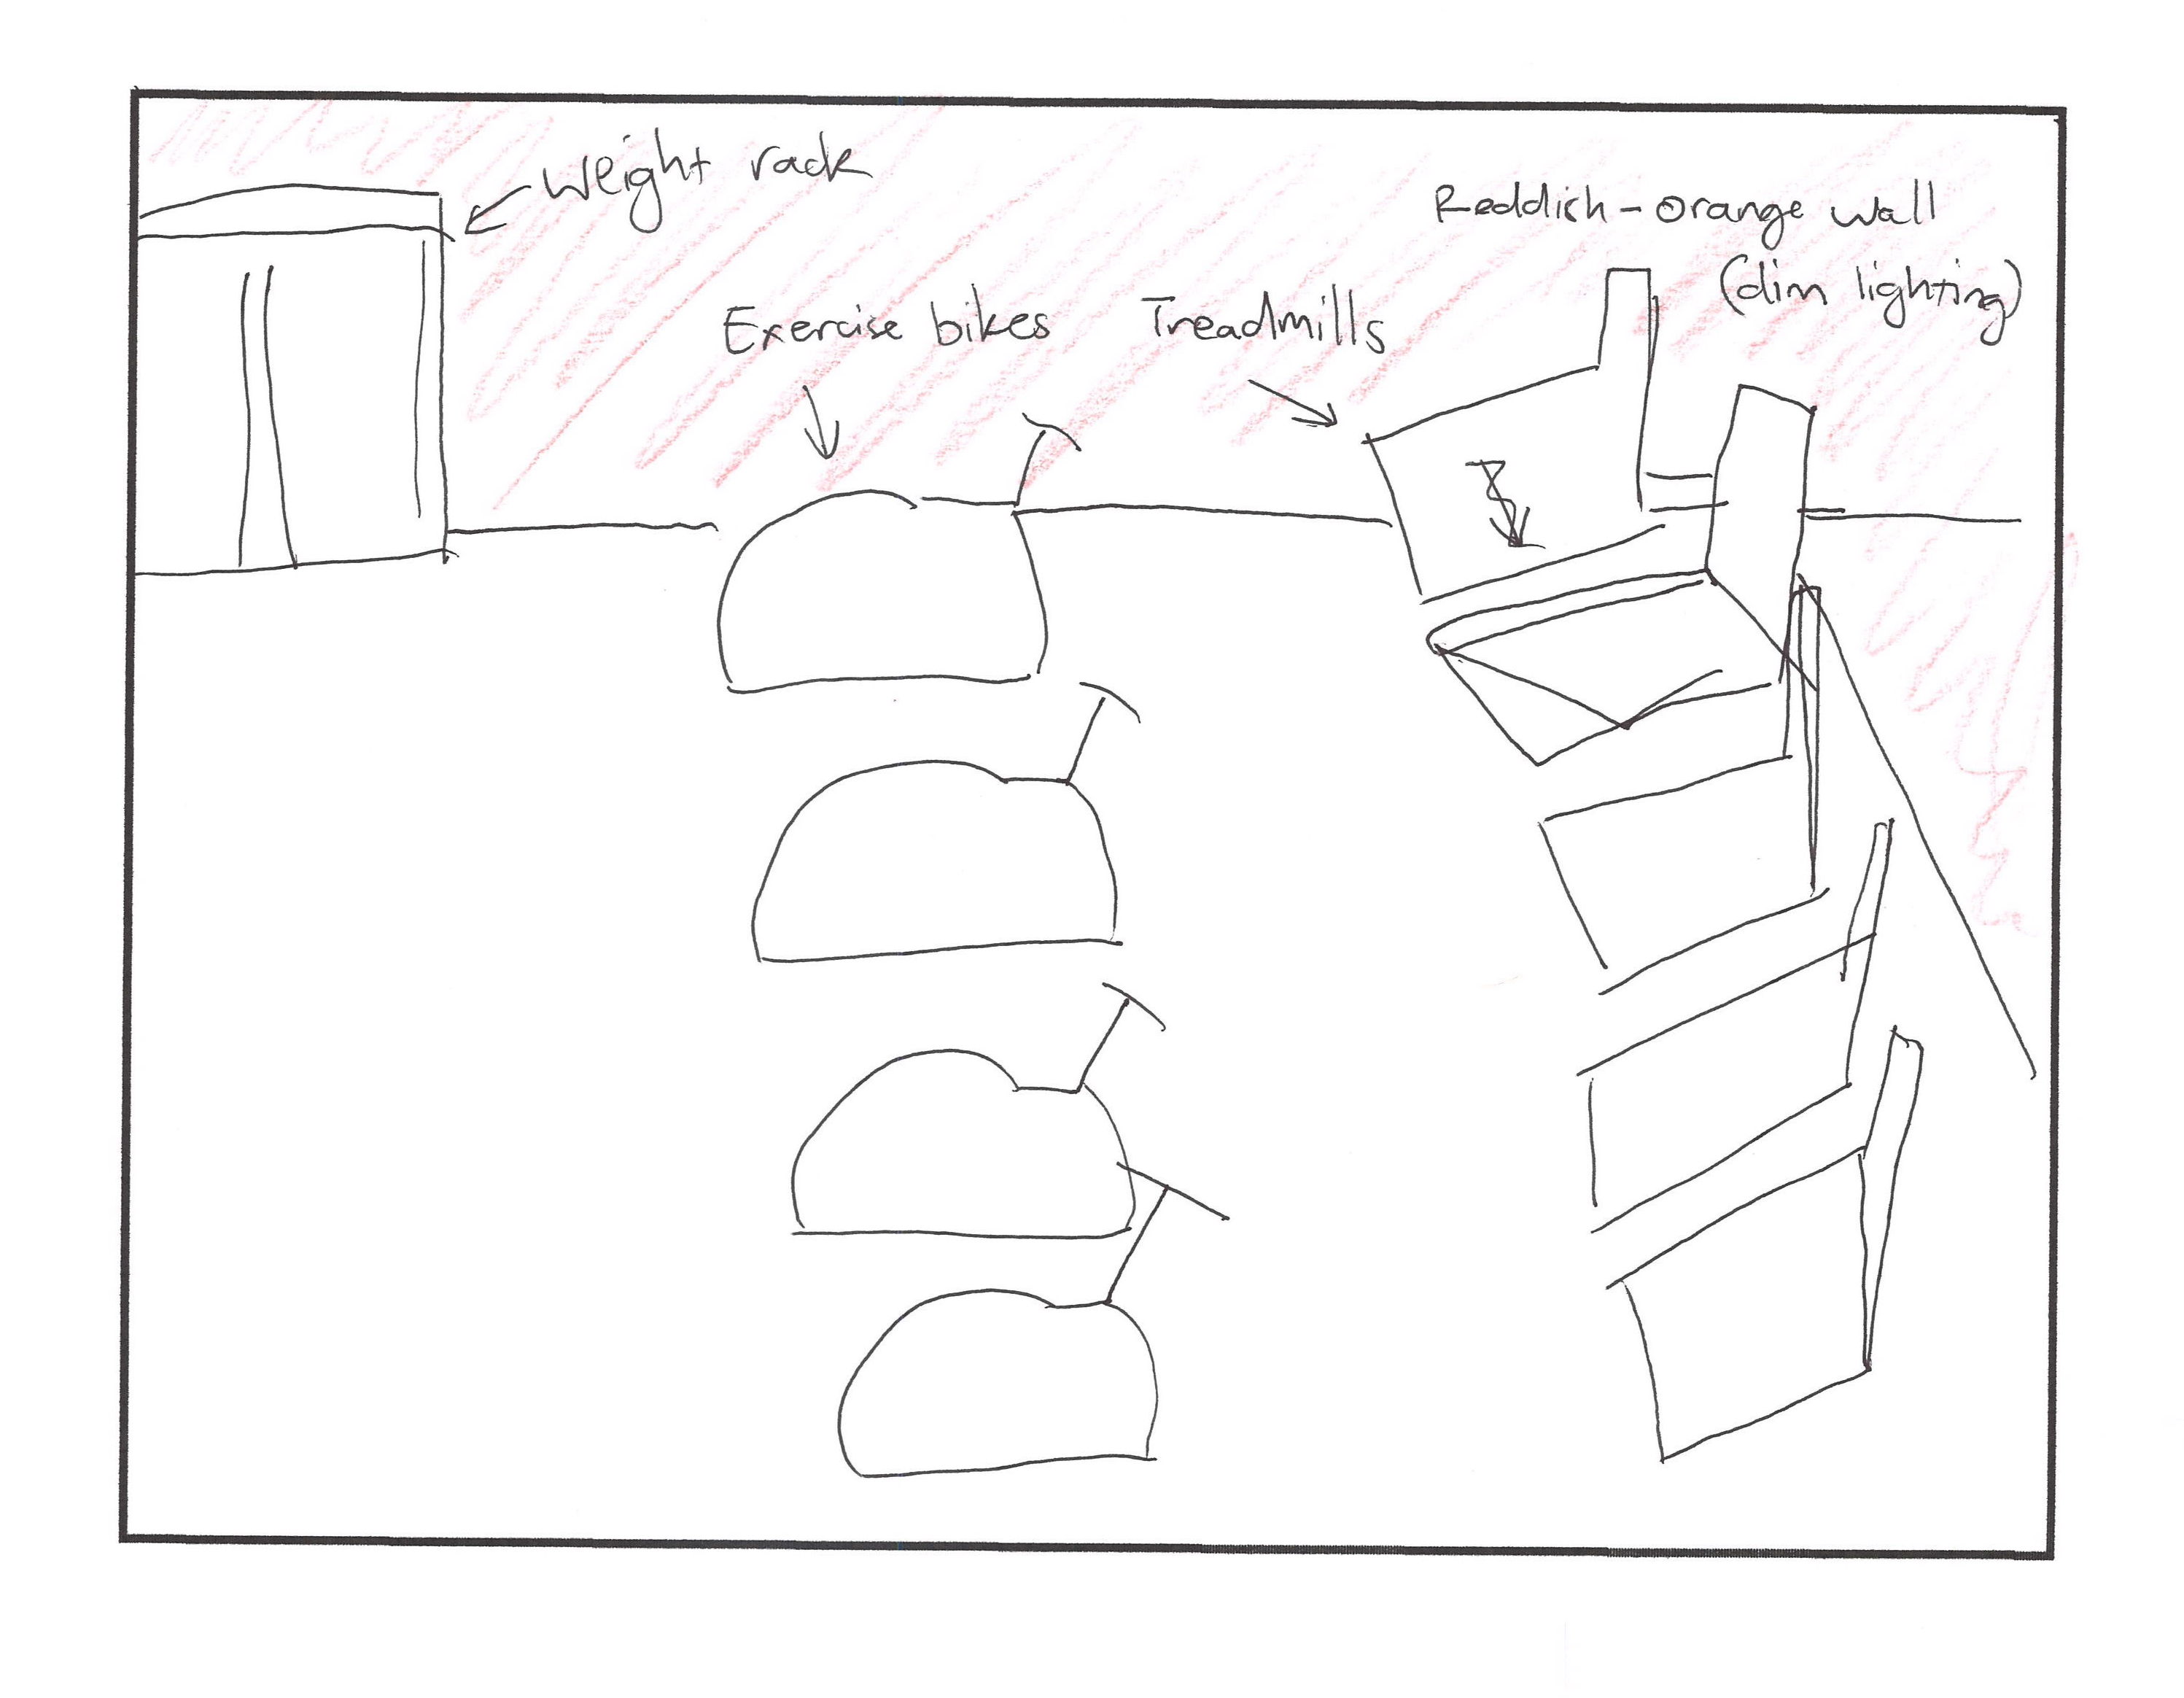 Weight rack
Reddish-orange wall
(dim lighting)
Exercise bikes
Treadmills